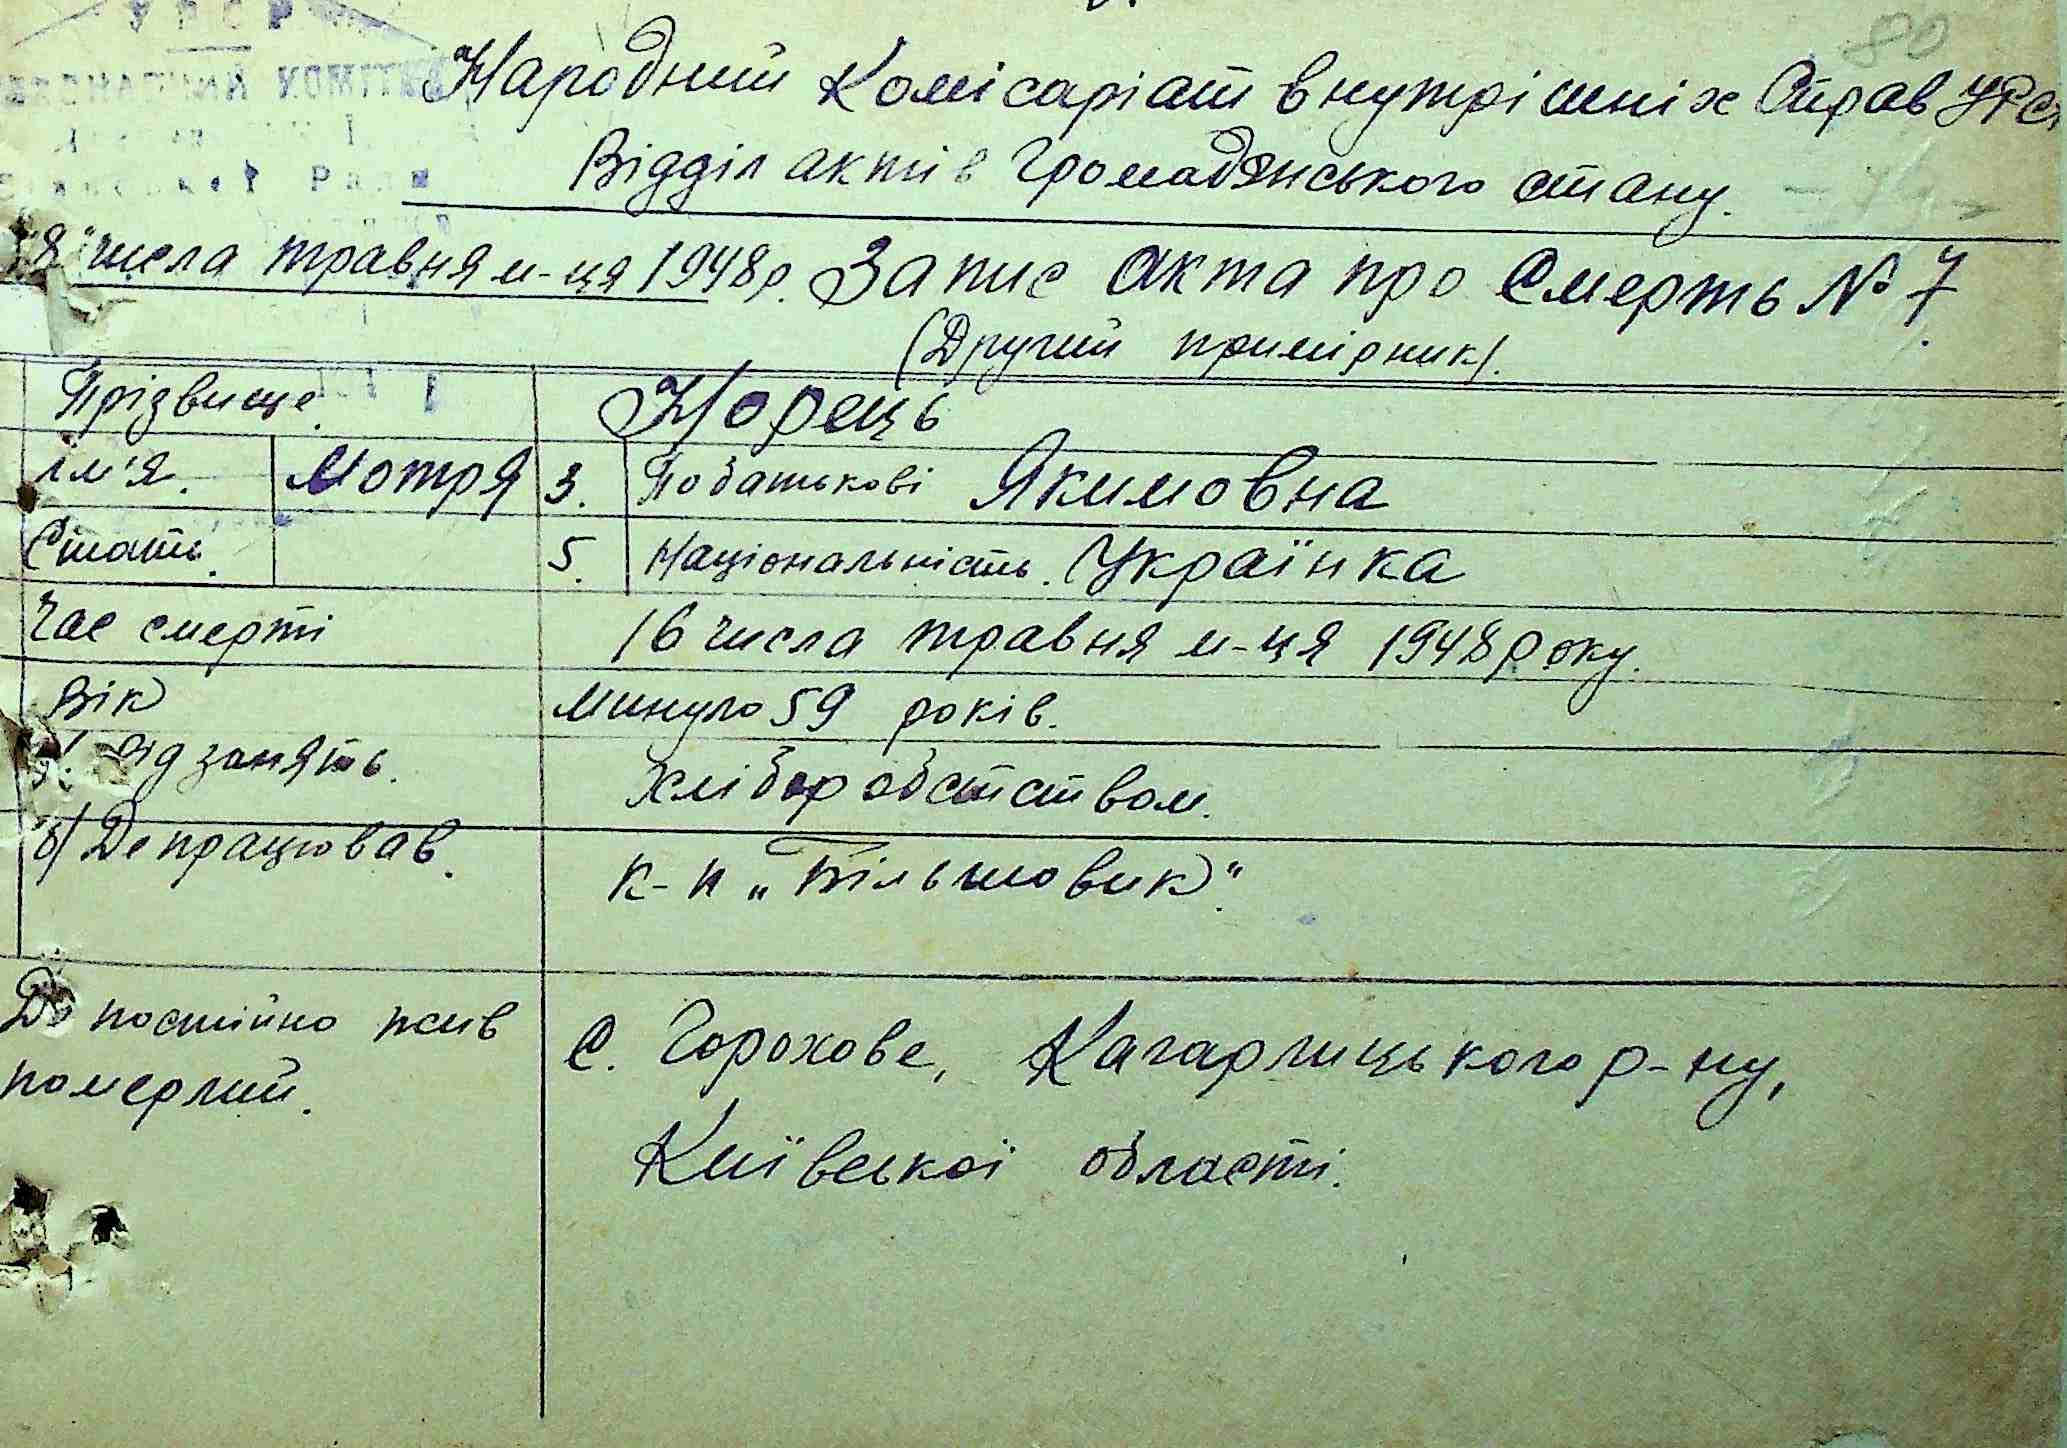 80
УРСР
Народний Комісаріат внутрішніх Справ УРСР
Відділ актів Громадянського стану.
числа травня м-ця 1948р. Запис акта про Смерть № 7
(Другий примірник).
Прізвище. Норець
Ім'я. Мотря 3. Податькові Якимовна
Стать. 5. Національність. Українка
Час смерті 16 числа травня м-ця 1948 року.
Вік минуло 59 років.
Рід занять. Хліборобстством.
б) Де працював. к-п „Більшовик".
Де постійно жив С. Горохове, Кагарлицького р-ну,
померлий. Київської області.